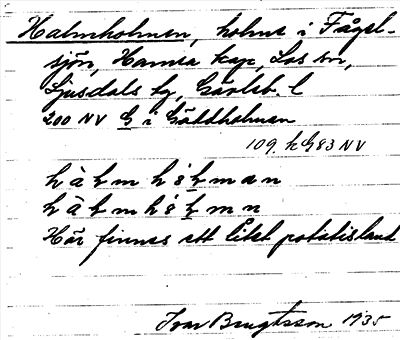 Halmholmen, holme i Fågel-
sjön, Hamra kap, Los sn,
Ljusdals tg, Gävleb. l
200 NV G i Gåltholman
109. h G 83 NV
Här finnes ett litet potatisland
Ivar Bengtsson 1935